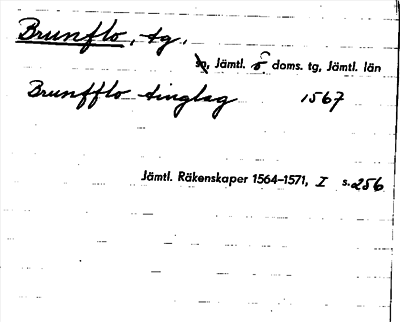 Brunflo, tg.
sn, Jämtl. ö doms. tg, Jämtl. län
Brunfflo tinglag 1567
Jämtl. Räkenskaper 1564–1571, I s. 256